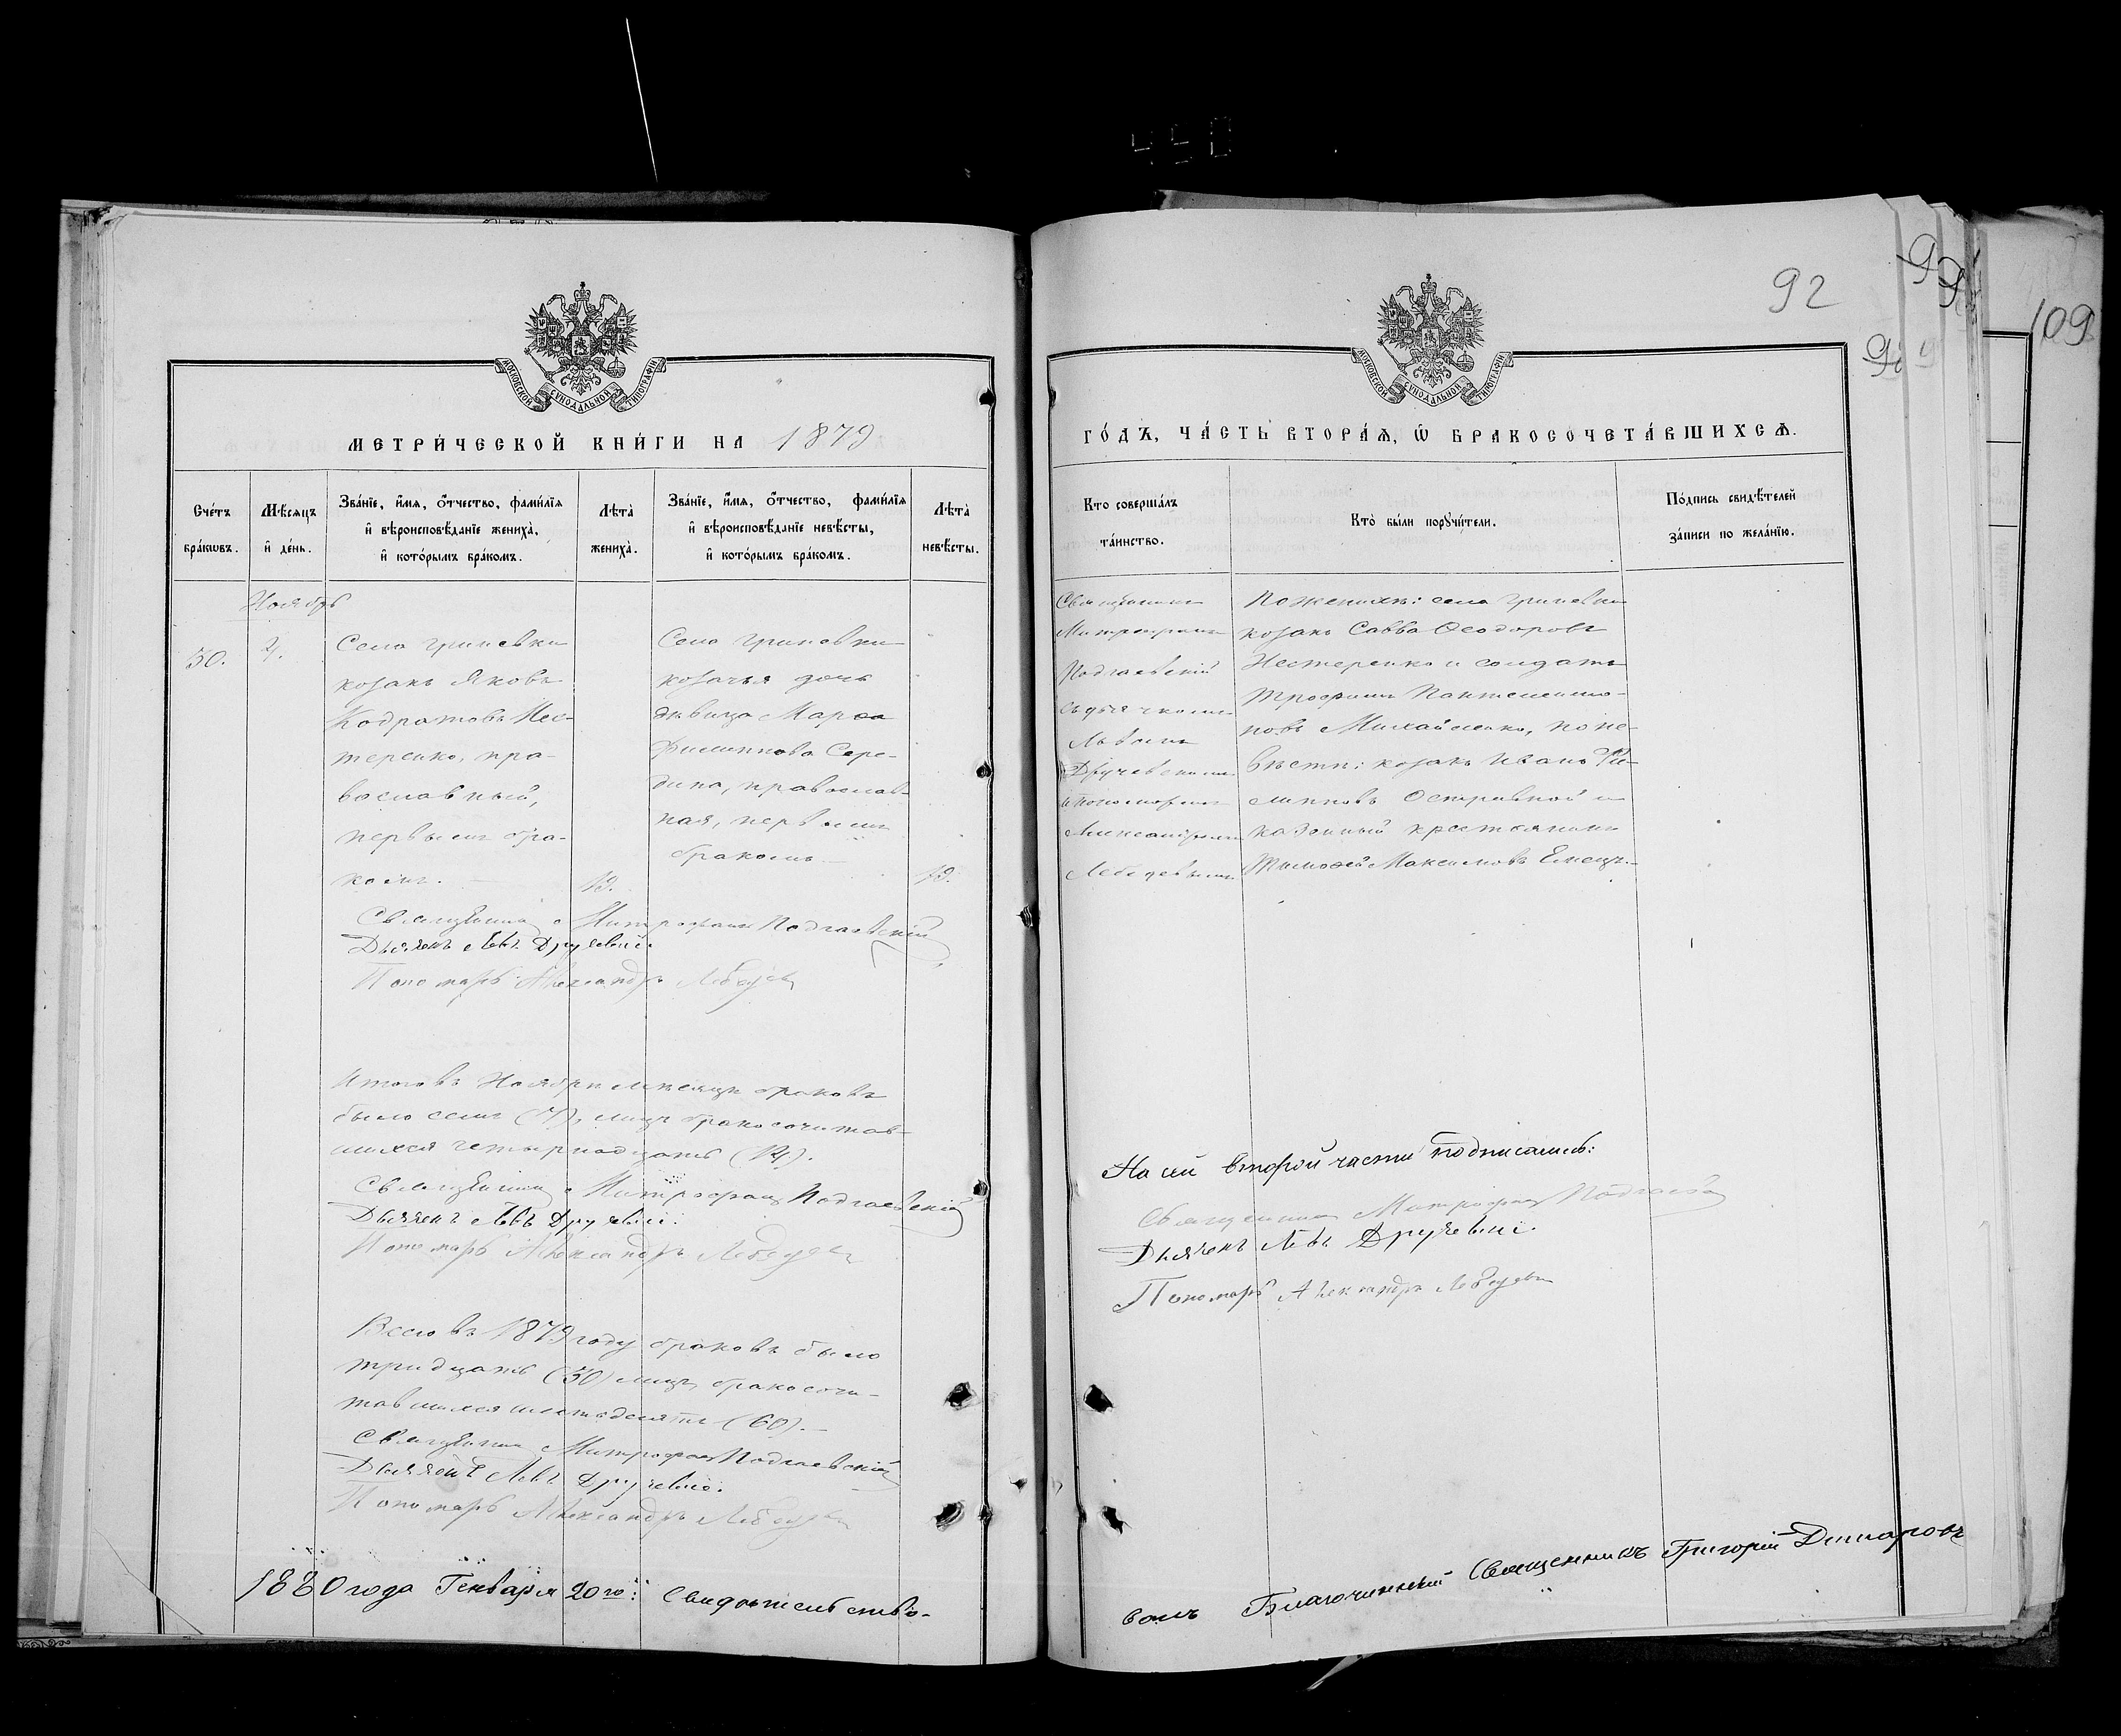 92
99
109
МОСКОВСКОЙ СУНОДАЛЬНОЙ ТИПОГРАФІИ
МОСКОВСКОЙ СУНОДАЛЬНОЙ ТИПОГРАФІИ
МЕТРИ́ЧЕСКОЙ КНИ́ГИ НА 1879
ГО́ДЪ, ЧА́СТЬ ВТОРА́Я, Ѡ҆ БРАКОСОЧЕТА́ВШИХСЯ.
Сче́тъ бра́кѡвъ.
Мѣ́сяцъ и҆ де́нь.
Зва́нїе, и҆́мя, ѻ҆́тчество, фами́лїя
и҆ вѣроисповѣ́данїе жениха̀,
и҆ кото́рымъ бра́комъ.
Лѣта̀ жениха̀.
Зва́нїе, и҆́мя, ѻ҆́тчество, фами́лїя
и҆ вѣроисповѣ́данїе невѣ́сты,
и҆ кото́рымъ бра́комъ.
Лѣта̀ невѣ́сты.
Кто соверша́лъ
та́инство.
Кто̀ бы́ли порꙋчи́тели.
По́дпись свидѣ́телей
за́писи по жела́нїю.
Ноябрь
30.
4.
Села Гриневки
козакъ Яковъ
Кодратовъ Нес-
теренко, пра-
вославный,
первымъ бра-
комъ.
19.
Села Гриневки
козачья дочь
дѣвица Марѳа
Филиппова Сере-
дина, православ-
ная, первымъ
бракомъ
19.
Священникъ
Митрофанъ
Подгаевскій
съ дьячкомъ
Львомъ
Дручевскимъ
и пономаремъ
Александромъ
Лебедевымъ
По женихѣ: села Гриневки
козакъ Савва Ѳеодоровъ
Нестеренко и солдатъ
Трофимъ Пантелеимо-
новъ Михайленко, по не-
вѣстѣ: козакъ Иванъ Фи-
липповъ Остривной и
казенный крестьянинъ
Тимоѳей Максимовъ Емецъ.
Священникъ Митрофанъ Подгаевскій
Дьячекъ Левъ
Пономарь Александръ Лебедев
Итого въ Ноябрѣ мѣсяцѣ браковъ
было семь (7), лицъ бракосочетав-
шихся четырнадцать (14).
Священникъ Митрофанъ Подгаевскій
Дьячекъ Левъ
Пономарь Александръ Лебедев
Всего въ 1879 году браковъ было
тридцать (30) лицъ, бракосоче-
тавшихся шестьдесятъ (60).
Священникъ Митрофанъ Подгаевскій
Дьячекъ Левъ
Пономарь Александръ Лебедев
На сей второй части подписались:
Священникъ Митрофанъ
Дьячекъ Левъ
Пономарь Александръ Лебедев
1880 года Генваря 20го: Свидѣтельство-
валъ Благочинный Священникъ Григорій